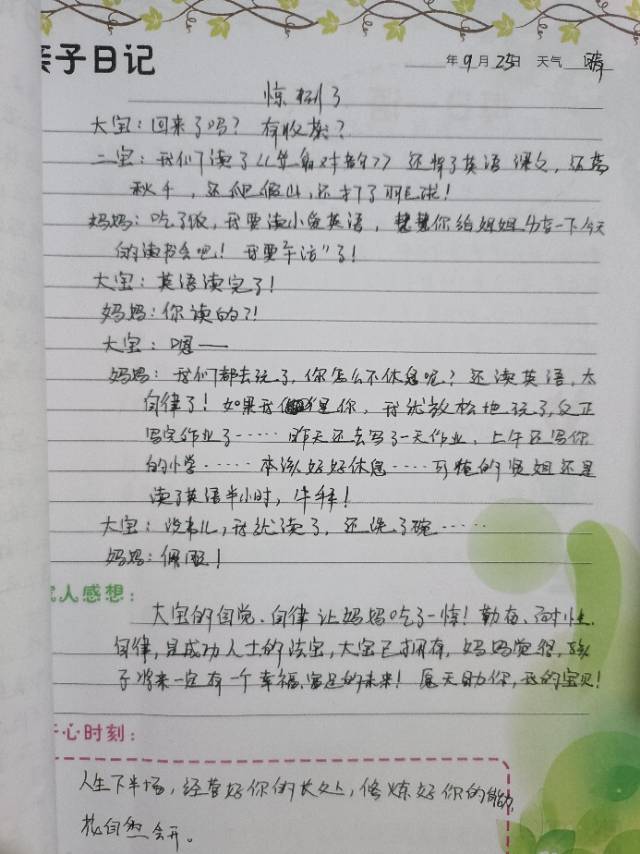 亲子日记
年9月25日 天气 晴
惊捌了
大宝：回来了吗？有收获？
二宝：我们读了《笠翁对韵》还背了英语课文，还荡
秋千，还爬假山，还打了羽毛球！
妈妈：吃了饭，我要读小宝英语，慧慧你给姐姐分享一下今天
的读书会吧！我要"采访"了！
大宝：英语读完了！
妈妈：你读的？!
大宝：嗯——
妈妈：我们都去玩了，你怎么不休息呢？还读英语，太
自律了！如果我是你，我就放松地玩了，反正
写完作业了……昨天还去写了一天作业，上午还写你
的小学……本该好好休息……可俺的贤姐还是
读了英语半小时，牛拜！
大宝：没事儿，我就读了，还洗了碗……
妈妈：佩服！
人感想：
大宝的自觉、自律让妈妈吃了一惊！勤奋、耐性、
自律，是成功人士的法宝，大宝已拥有，妈妈觉得，孩
子将来一定有一个幸福、富足的未来！愿天助你，我的宝贝！
开心时刻：
人生下半场，经营好你的长处，修炼好你的能力，
花自然会开。